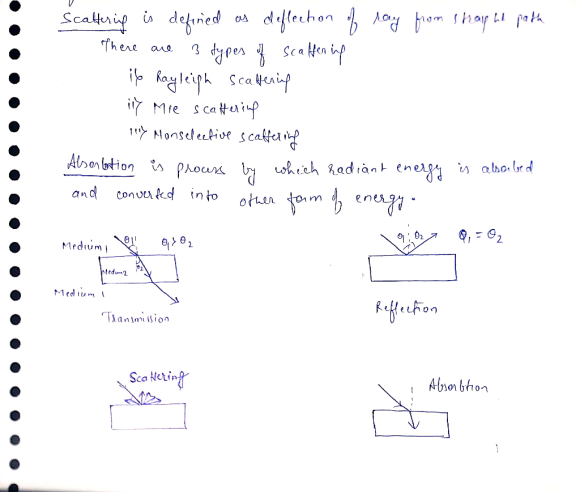 Scattering is defined as deflection of ray from straight path
There are 3 types of scattering
i> Rayleigh scattering
ii> Mie scattering
iii> Nonselective scattering
Absorbtion is process by which radiant energy is absorbed
and converted into other form of energy.
Medium 1 θ1 θ1 > θ2
Medium 2 θ2
Medium 1
Transmission
θ1 θ2 θ1 = θ2
Reflection
Scattering
Absorbtion